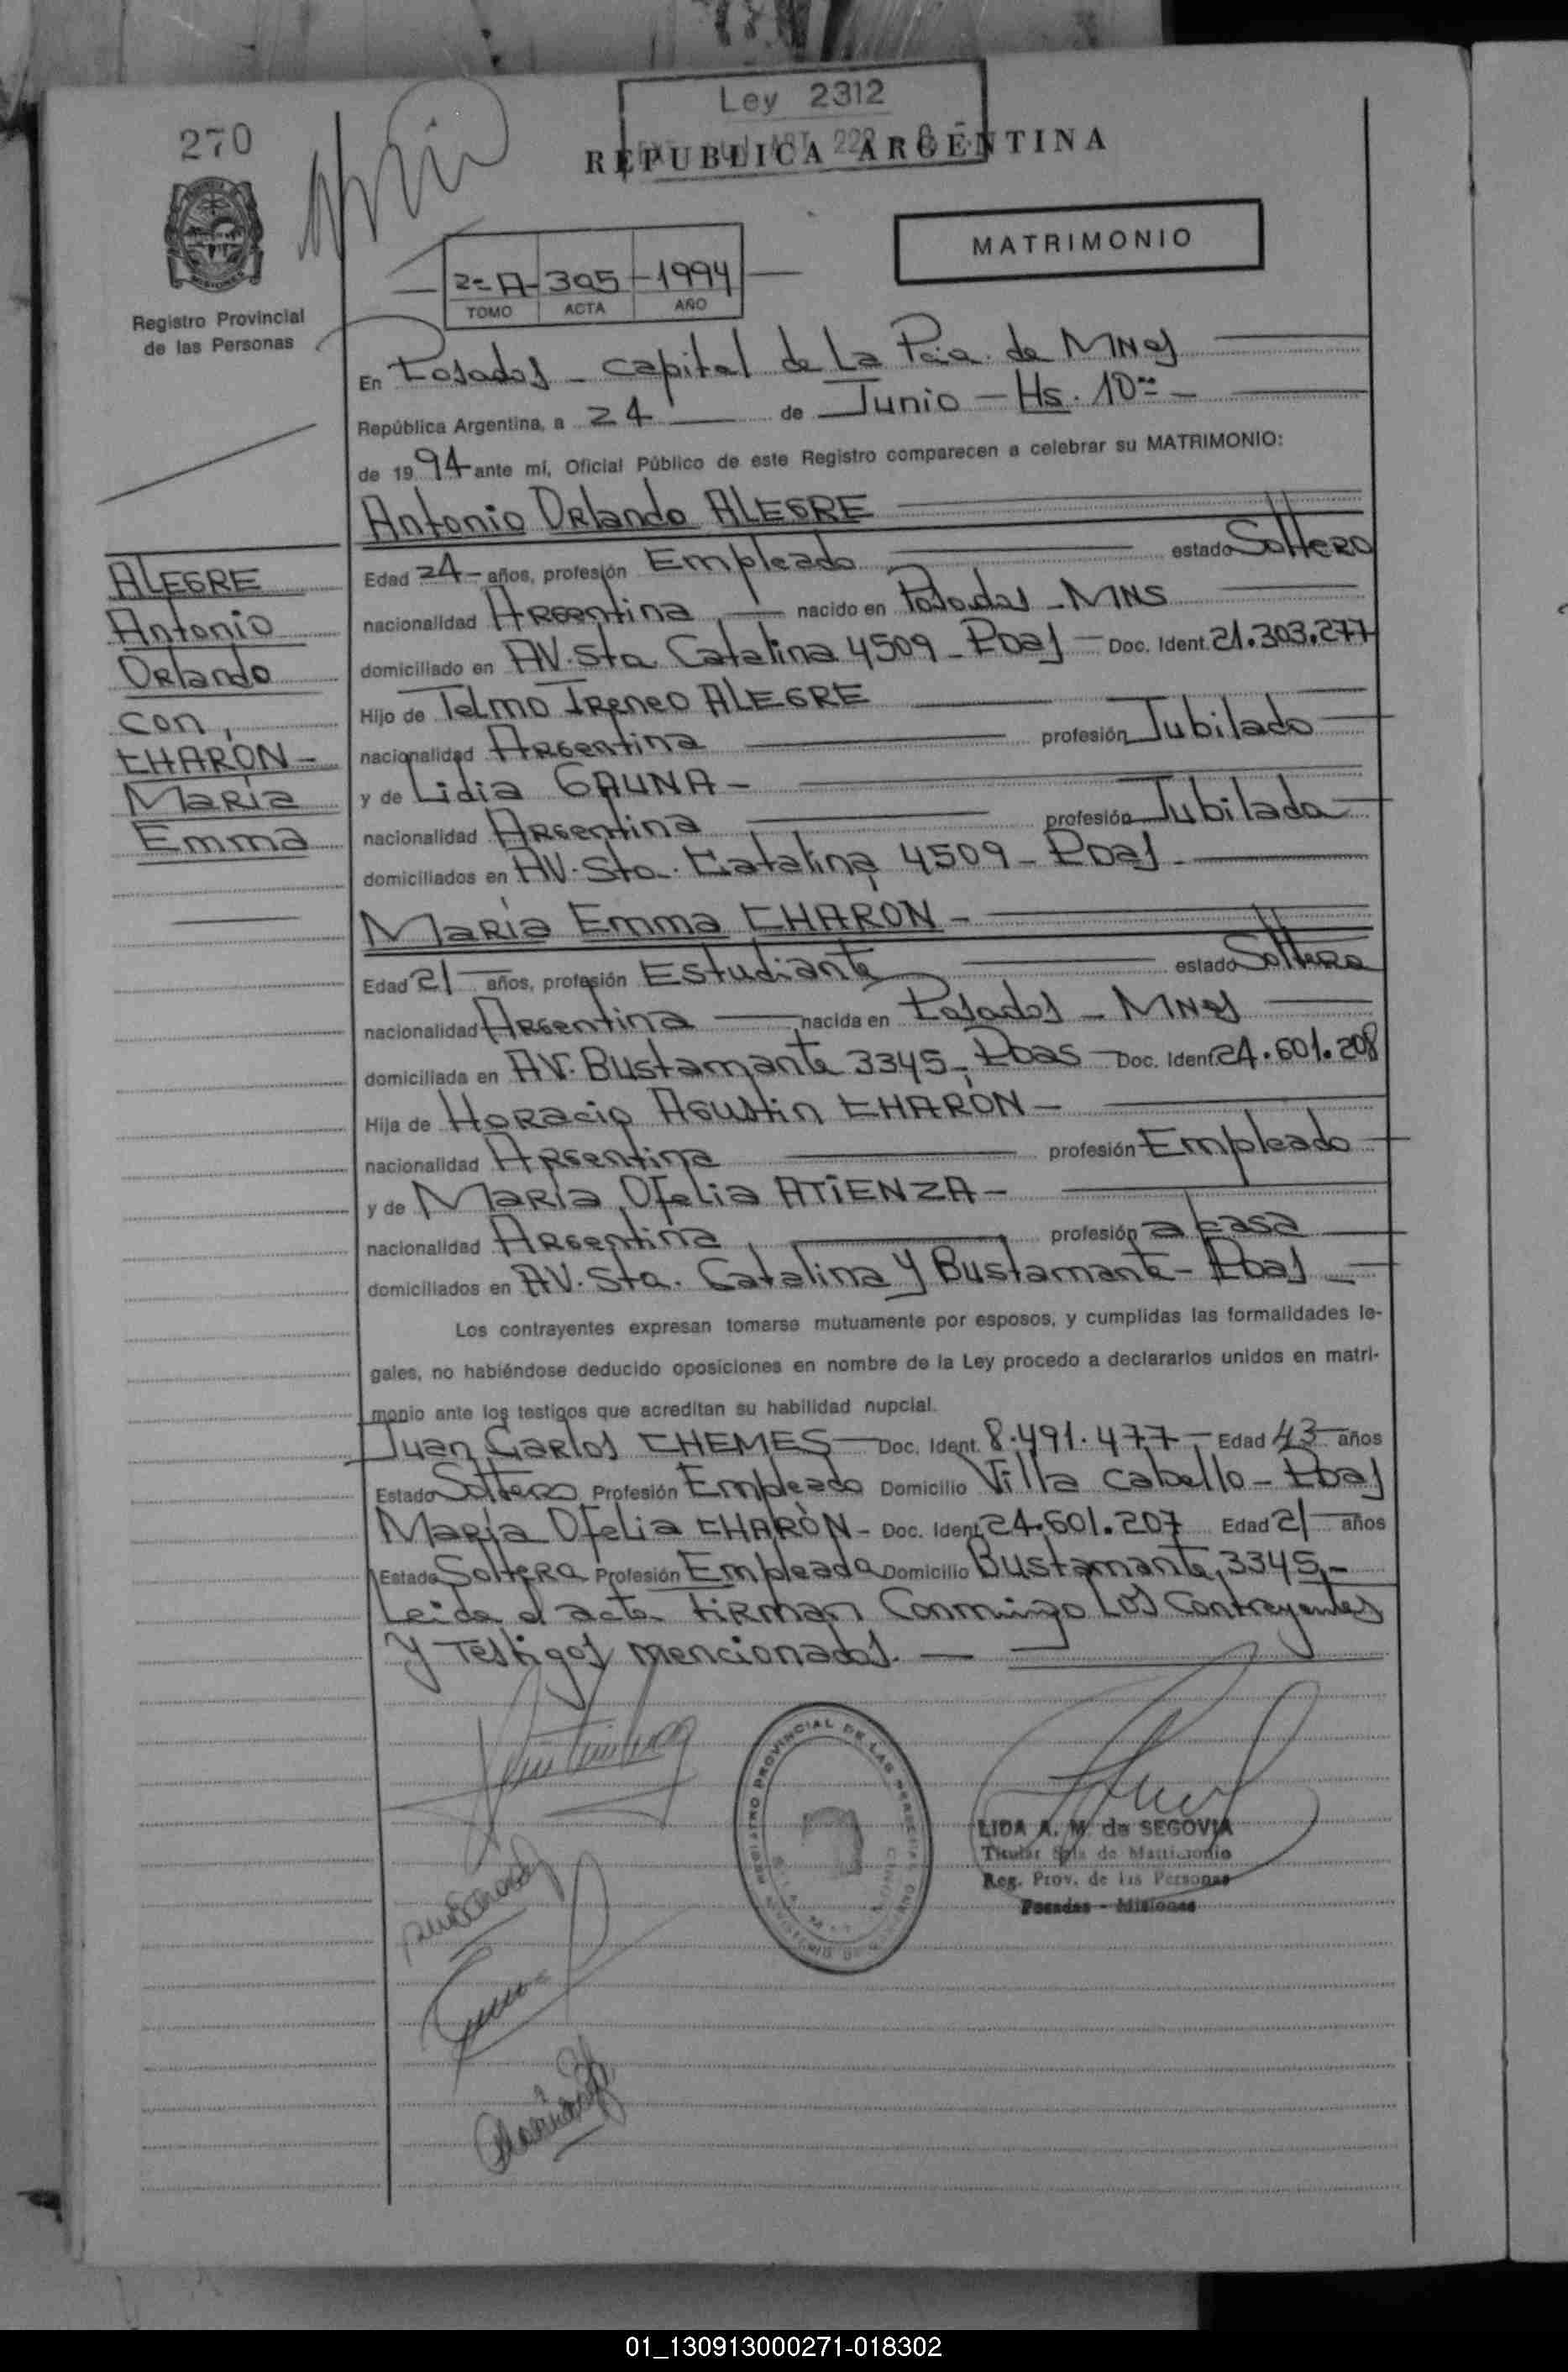 270
Ley 2312
REPUBLICA ARGENTINA
MATRIMONIO
2= A - 305 - 1994
TOMO ACTA AÑO
Registro Provincial
de las Personas
En Posadas - capital de La Pcia. de MNes
República Argentina, a 24 de Junio - Hs. 10==
de 1994 ante mí, Oficial Público de este Registro comparecen a celebrar su MATRIMONIO:
Antonio Orlando ALEGRE
Edad 24- años, profesión Empleado estado Soltero
nacionalidad Argentina, nacido en Posadas - MNS
domiciliado en AV. Sta Catalina 4509 - Pdas - Doc. Ident. 21.303.277
Hijo de Telmo Ireneo ALEGRE
nacionalidad Argentina profesión Jubilado
y de Lidia GAUNA -
nacionalidad Argentina profesión Jubilada
domiciliados en AV. Sta. Catalina 4509 - Pdas -
María Emma CHARON -
Edad 21 años, profesión Estudiante estado Soltera
nacionalidad Argentina nacida en Posadas - MNes
domiciliada en AV. Bustamante 3345 - Pdas - Doc. Ident. 24.601.208
Hija de Horacio Agustin CHARÓN -
nacionalidad Argentina profesión Empleado
y de María Ofelia ATIENZA -
nacionalidad Argentina, profesión a casa
domiciliados en AV. Sta. Catalina y Bustamante - Pdas -
Los contrayentes expresan tomarse mutuamente por esposos, y cumplidas las formalidades le-
gales, no habiéndose deducido oposiciones en nombre de la Ley procedo a declararlos unidos en matri-
monio ante los testigos que acreditan su habilidad nupcial.
Juan Carlos CHEMES - Doc. Ident. 8.491.477 - Edad 43 años
Estado Soltero Profesión Empleado Domicilio Villa Cabello - Pdas
María Ofelia CHARÓN - Doc. Ident. 24.601.207 Edad 21 años
Estado Soltera Profesión Empleada Domicilio Bustamante, 3345 -
Leida el acta firman Conmigo Los Contrayentes
y Testigos mencionados. -
ALEGRE
Antonio
Orlando
con,
CHARÓN -
María
Emma
REGISTRO PROVINCIAL DE LAS
LIDA A. M. de SEGOVIA
Titular Sala de Matrimonio
Reg. Prov. de las Personas
Posadas - Misiones
01_130913000271-018302